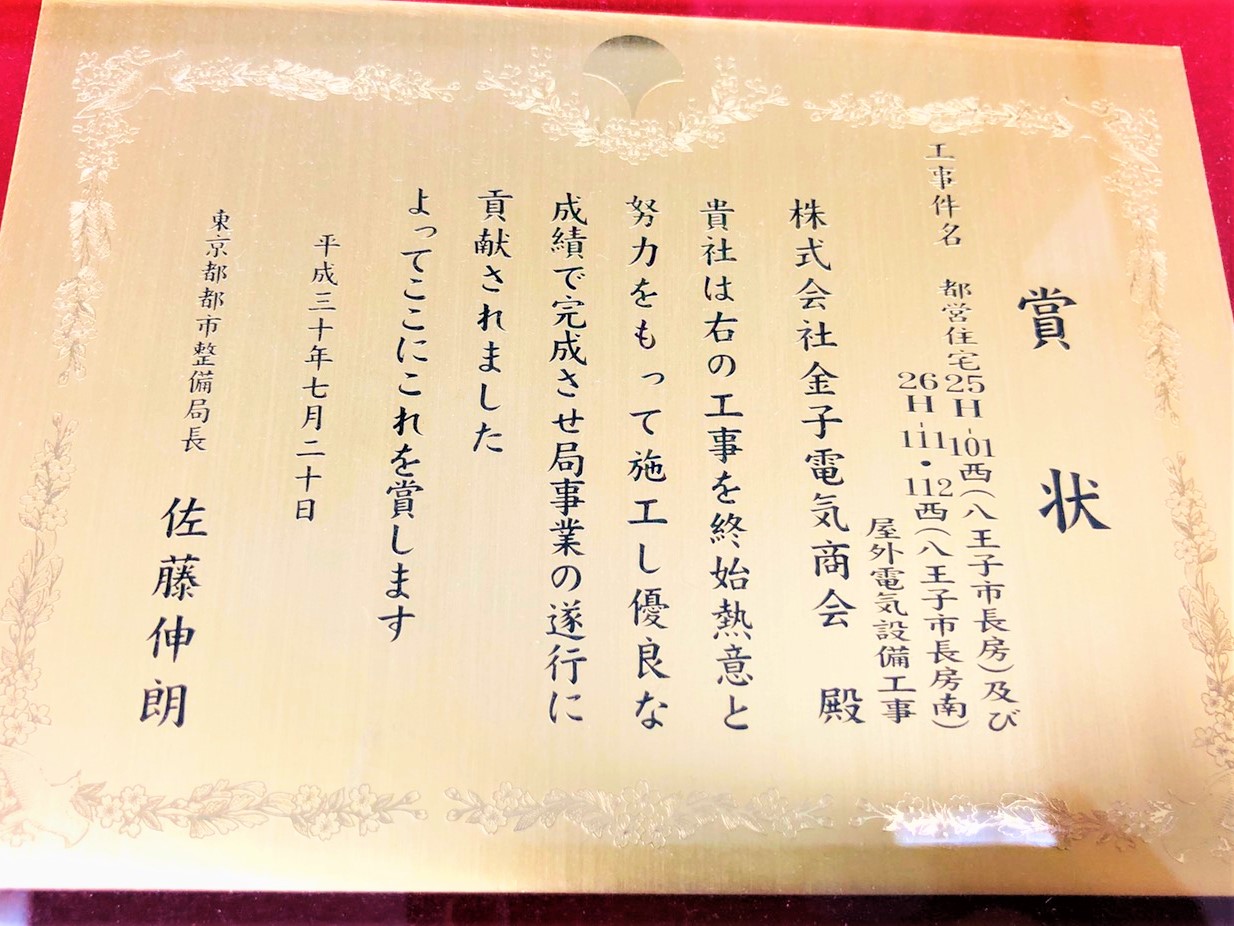 賞状
工事件名 都営住宅25H-101西(八王子市長房)及び
26H-111・112西(八王子市長房南)
屋外電気設備工事
株式会社金子電気商会 殿
貴社は右の工事を終始熱意と
努力をもって施工し優良な
成績で完成させ局事業の遂行に
貢献されました
よってここにこれを賞します
平成三十年七月二十日
東京都都市整備局長 佐藤伸朗